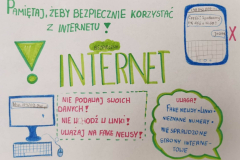 PAMIĘTAJ, ŻEBY BEZPIECZNIE KORZYSTAĆ
Z INTERNETU!
INTERNET
NIE PODAWAJ SWOICH
DANYCH!
NIE W DŹ U LINKI!
UWAŻAJ NA FAKE NEUSY!
UWAGA!
FAKE NEUSY, LINKI,
NIEZNANE NUMERY,
NIE SPRAWDZONE
STRONY INTERNE-
TOWE